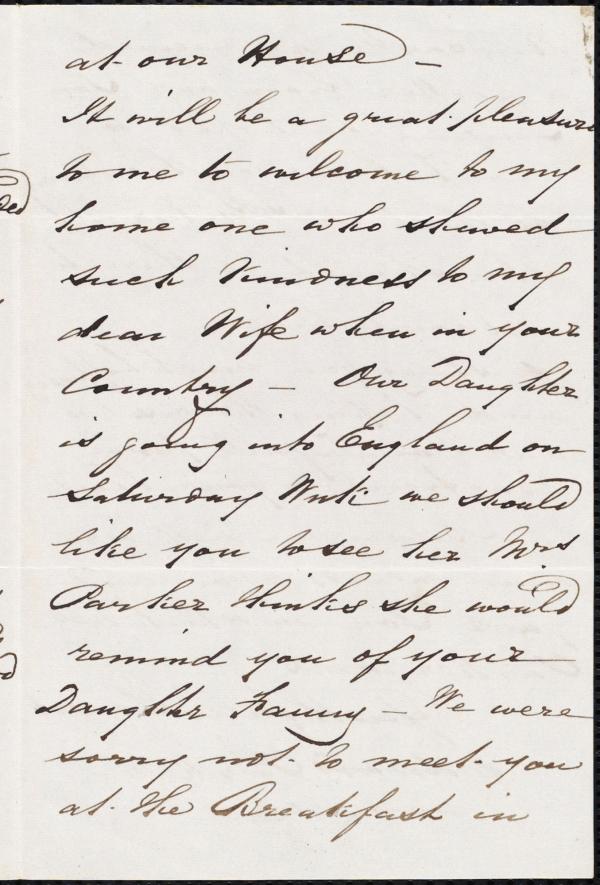 at our House –
It will be a great pleasure
to me to welcome to my
home one who shewed
such kindness to my
dear Wife when in your
Country – Our Daughter
is going into England on
Saturday Week we should
like you to see her Mrs
Parker thinks she would
remind you of your
Daughter Fanny – We were
sorry not to meet you
at the Breakfast in